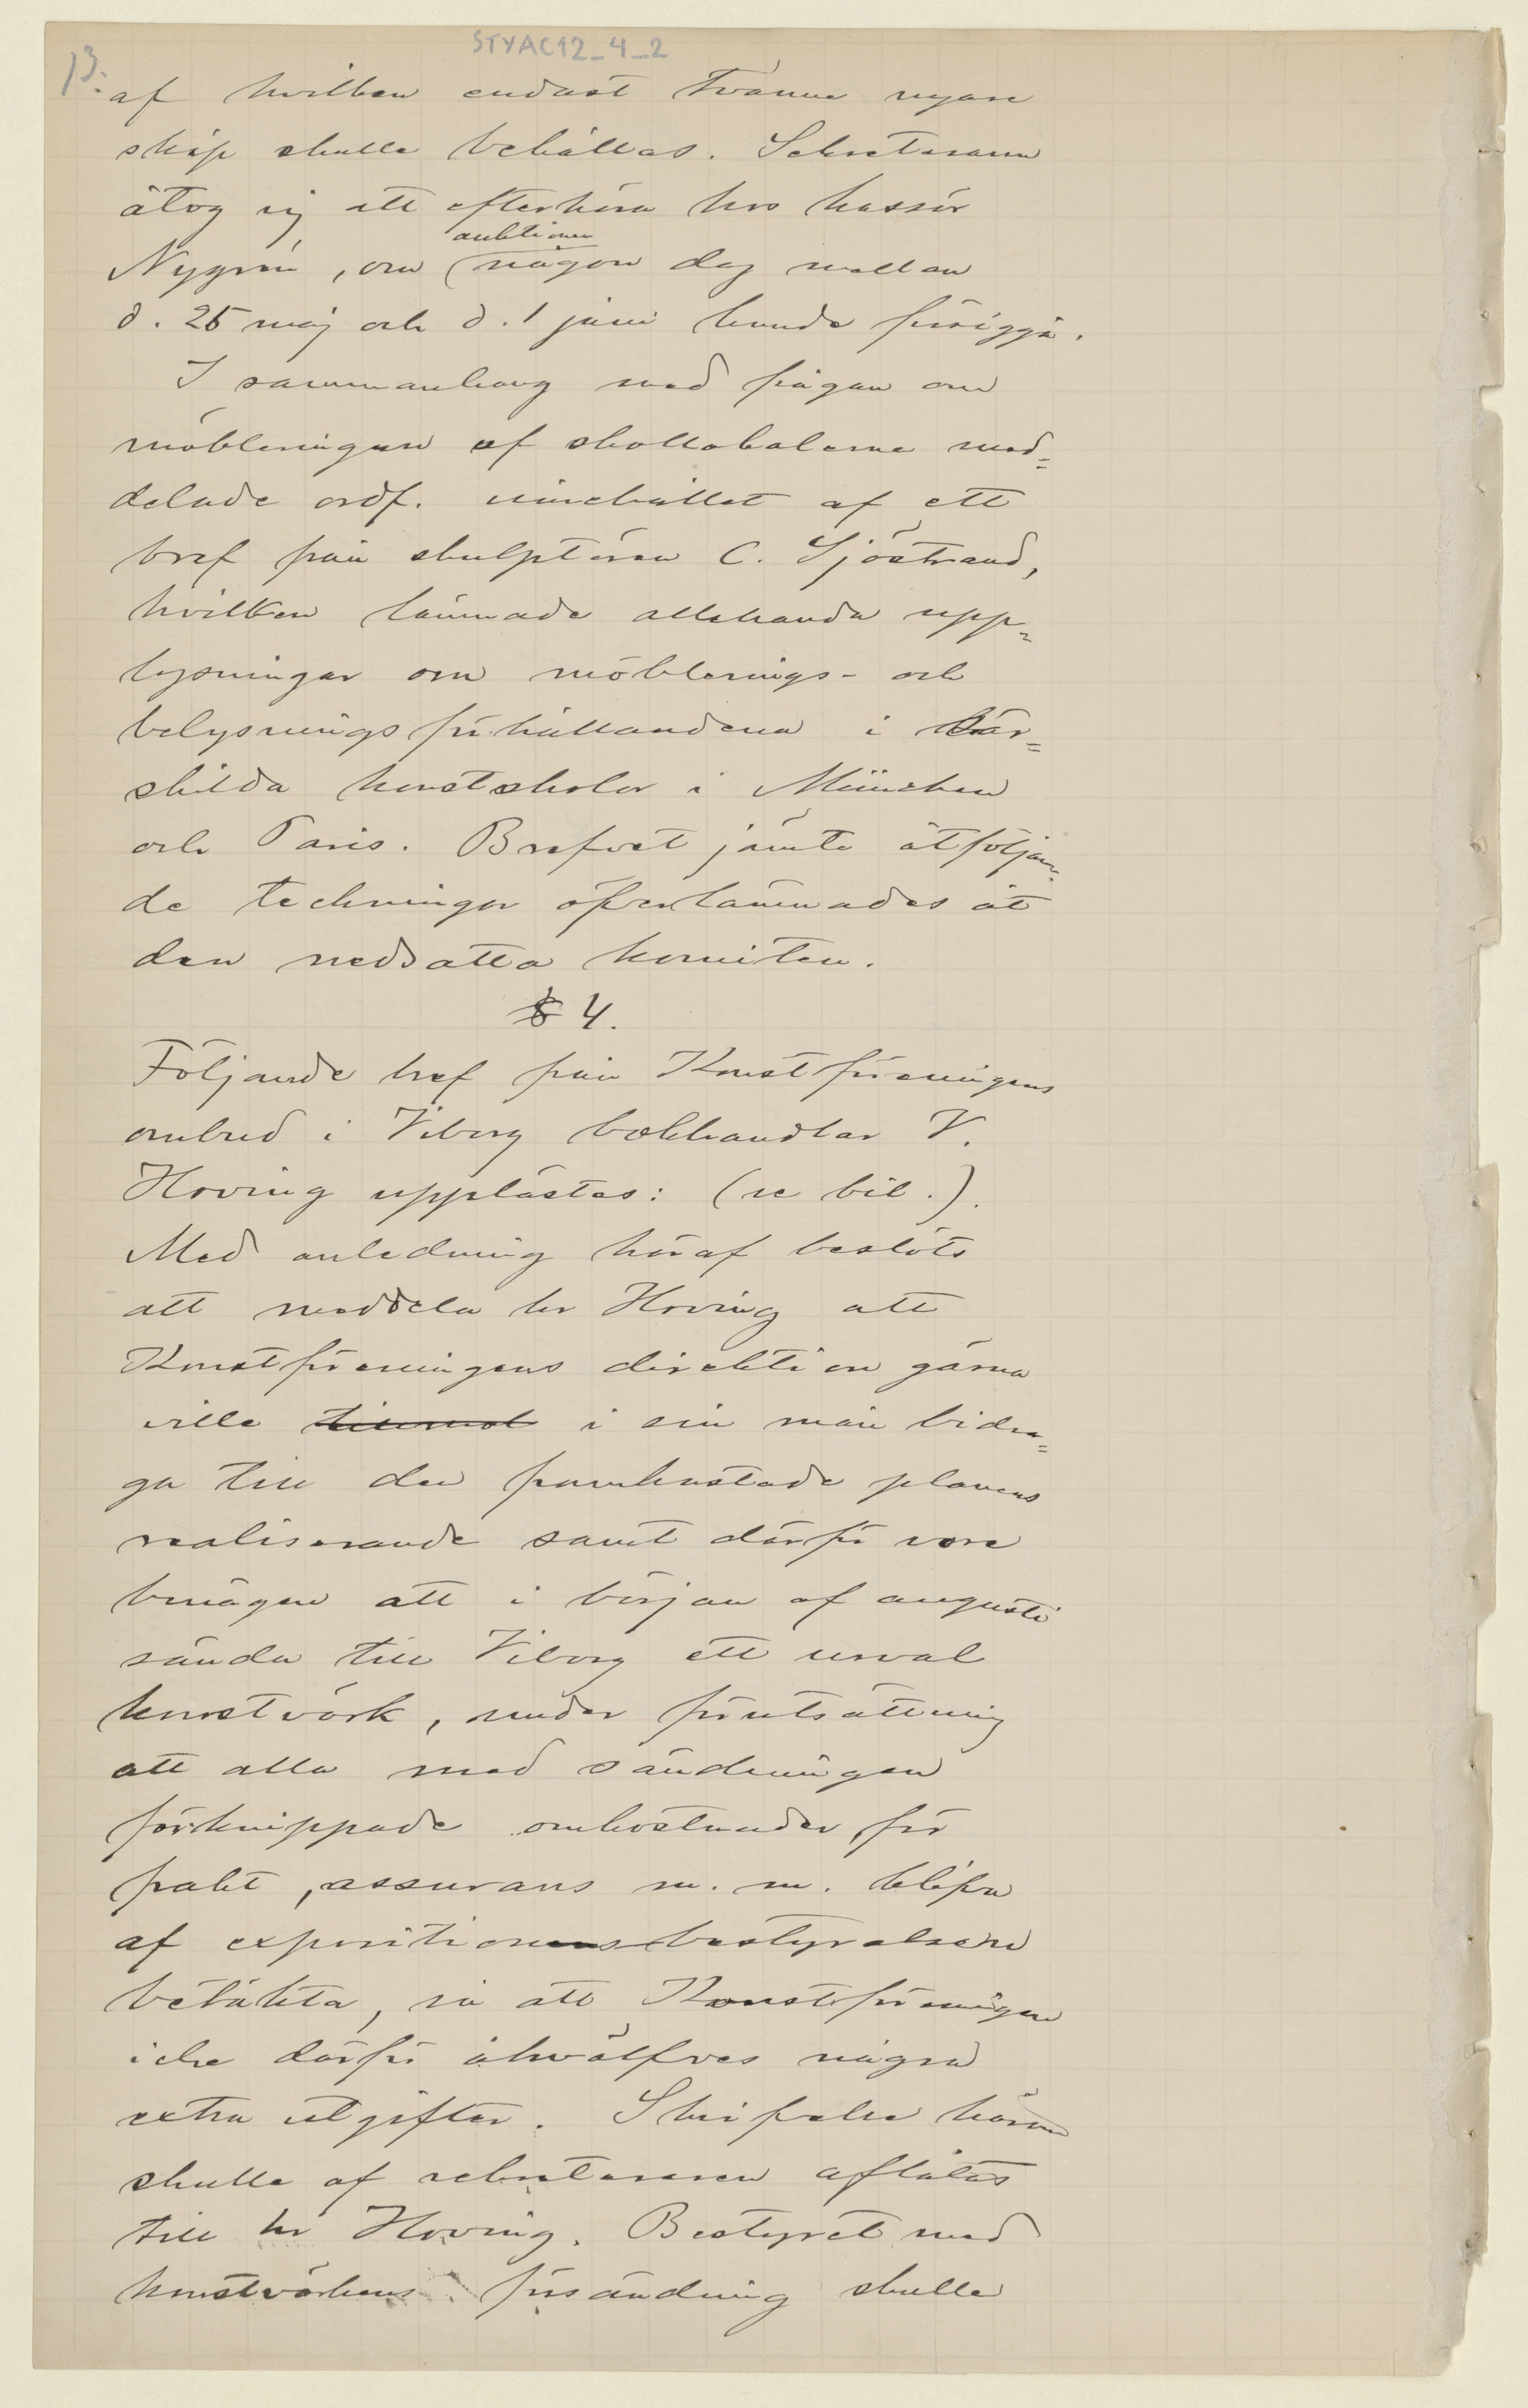 STYAC12_4_2
13.
af hvilken endast tvänne nyare
skåp skulle behållas. Sekreteraren
åtog sig att efterhöra hos kassör
auktionen
Nygrén, om någon dag mellan
d. 25 maj och d. 1 juni kunde försiggå.
I sammanhang med frågan om
möbleringen af skollokalerna med=
delade ordf. innehållet af ett
bref från skulptören C. Sjöstrand,
hvilken lämnade allehanda upp=
lysningar om möblerings- och
belysningsförhållandena i sär=
skilda konstskolor i München
och Paris. Brefvet jämte åtföljan=
de teckningar öfverlämnades åt
den nedsatta komitén.
§ 4.
Följande bref från Konstföreningens
ombud i Viborg bokhandlar V.
Hoving upplästes: (se bil.).
Med anledning häraf beslöts
att meddela hr Hoving att
Konstföreningens direktion gärna
ville i sin mån bidra=
ga till den framkastade planens
realiserande samt därför vore
benägen att i början af augusti
sända till Viborg ett urval
konstvärk, under förutsättning
att alla med sändningen
förknippade omkostnader för
frakt, assurans m. m. blefve
af expositionsbestyrelsen
betäkta, så att Konstföreningen
icke därför åhvälfves några
extra utgifter. Skrifvelse härom
skulle af sekreteraren aflåtas
till hr Hoving. Bestyret med
konstvärkens försändning skulle